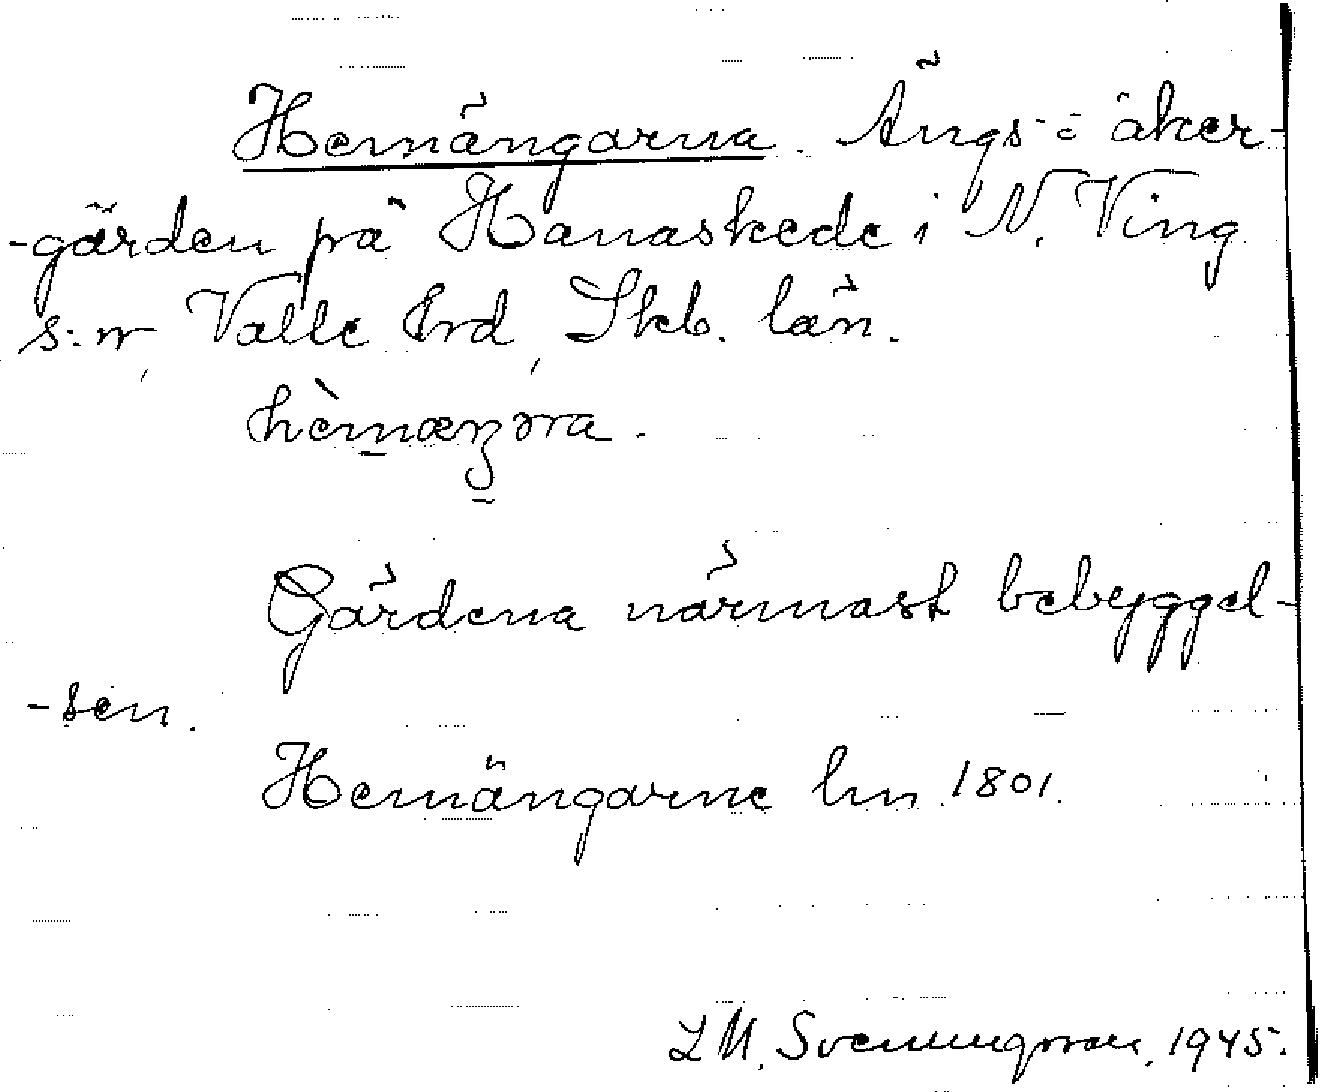 Hemängarna. Ängs- o åker-
-gärden på Hanaskede i N. Ving
s:n, Valle hrd, Skb. län.
hèmæŋəra.
Gärdena närmast bebyggel-
-sen.
Hemängarne lm 1801.
L M. Svenungsson, 1945.